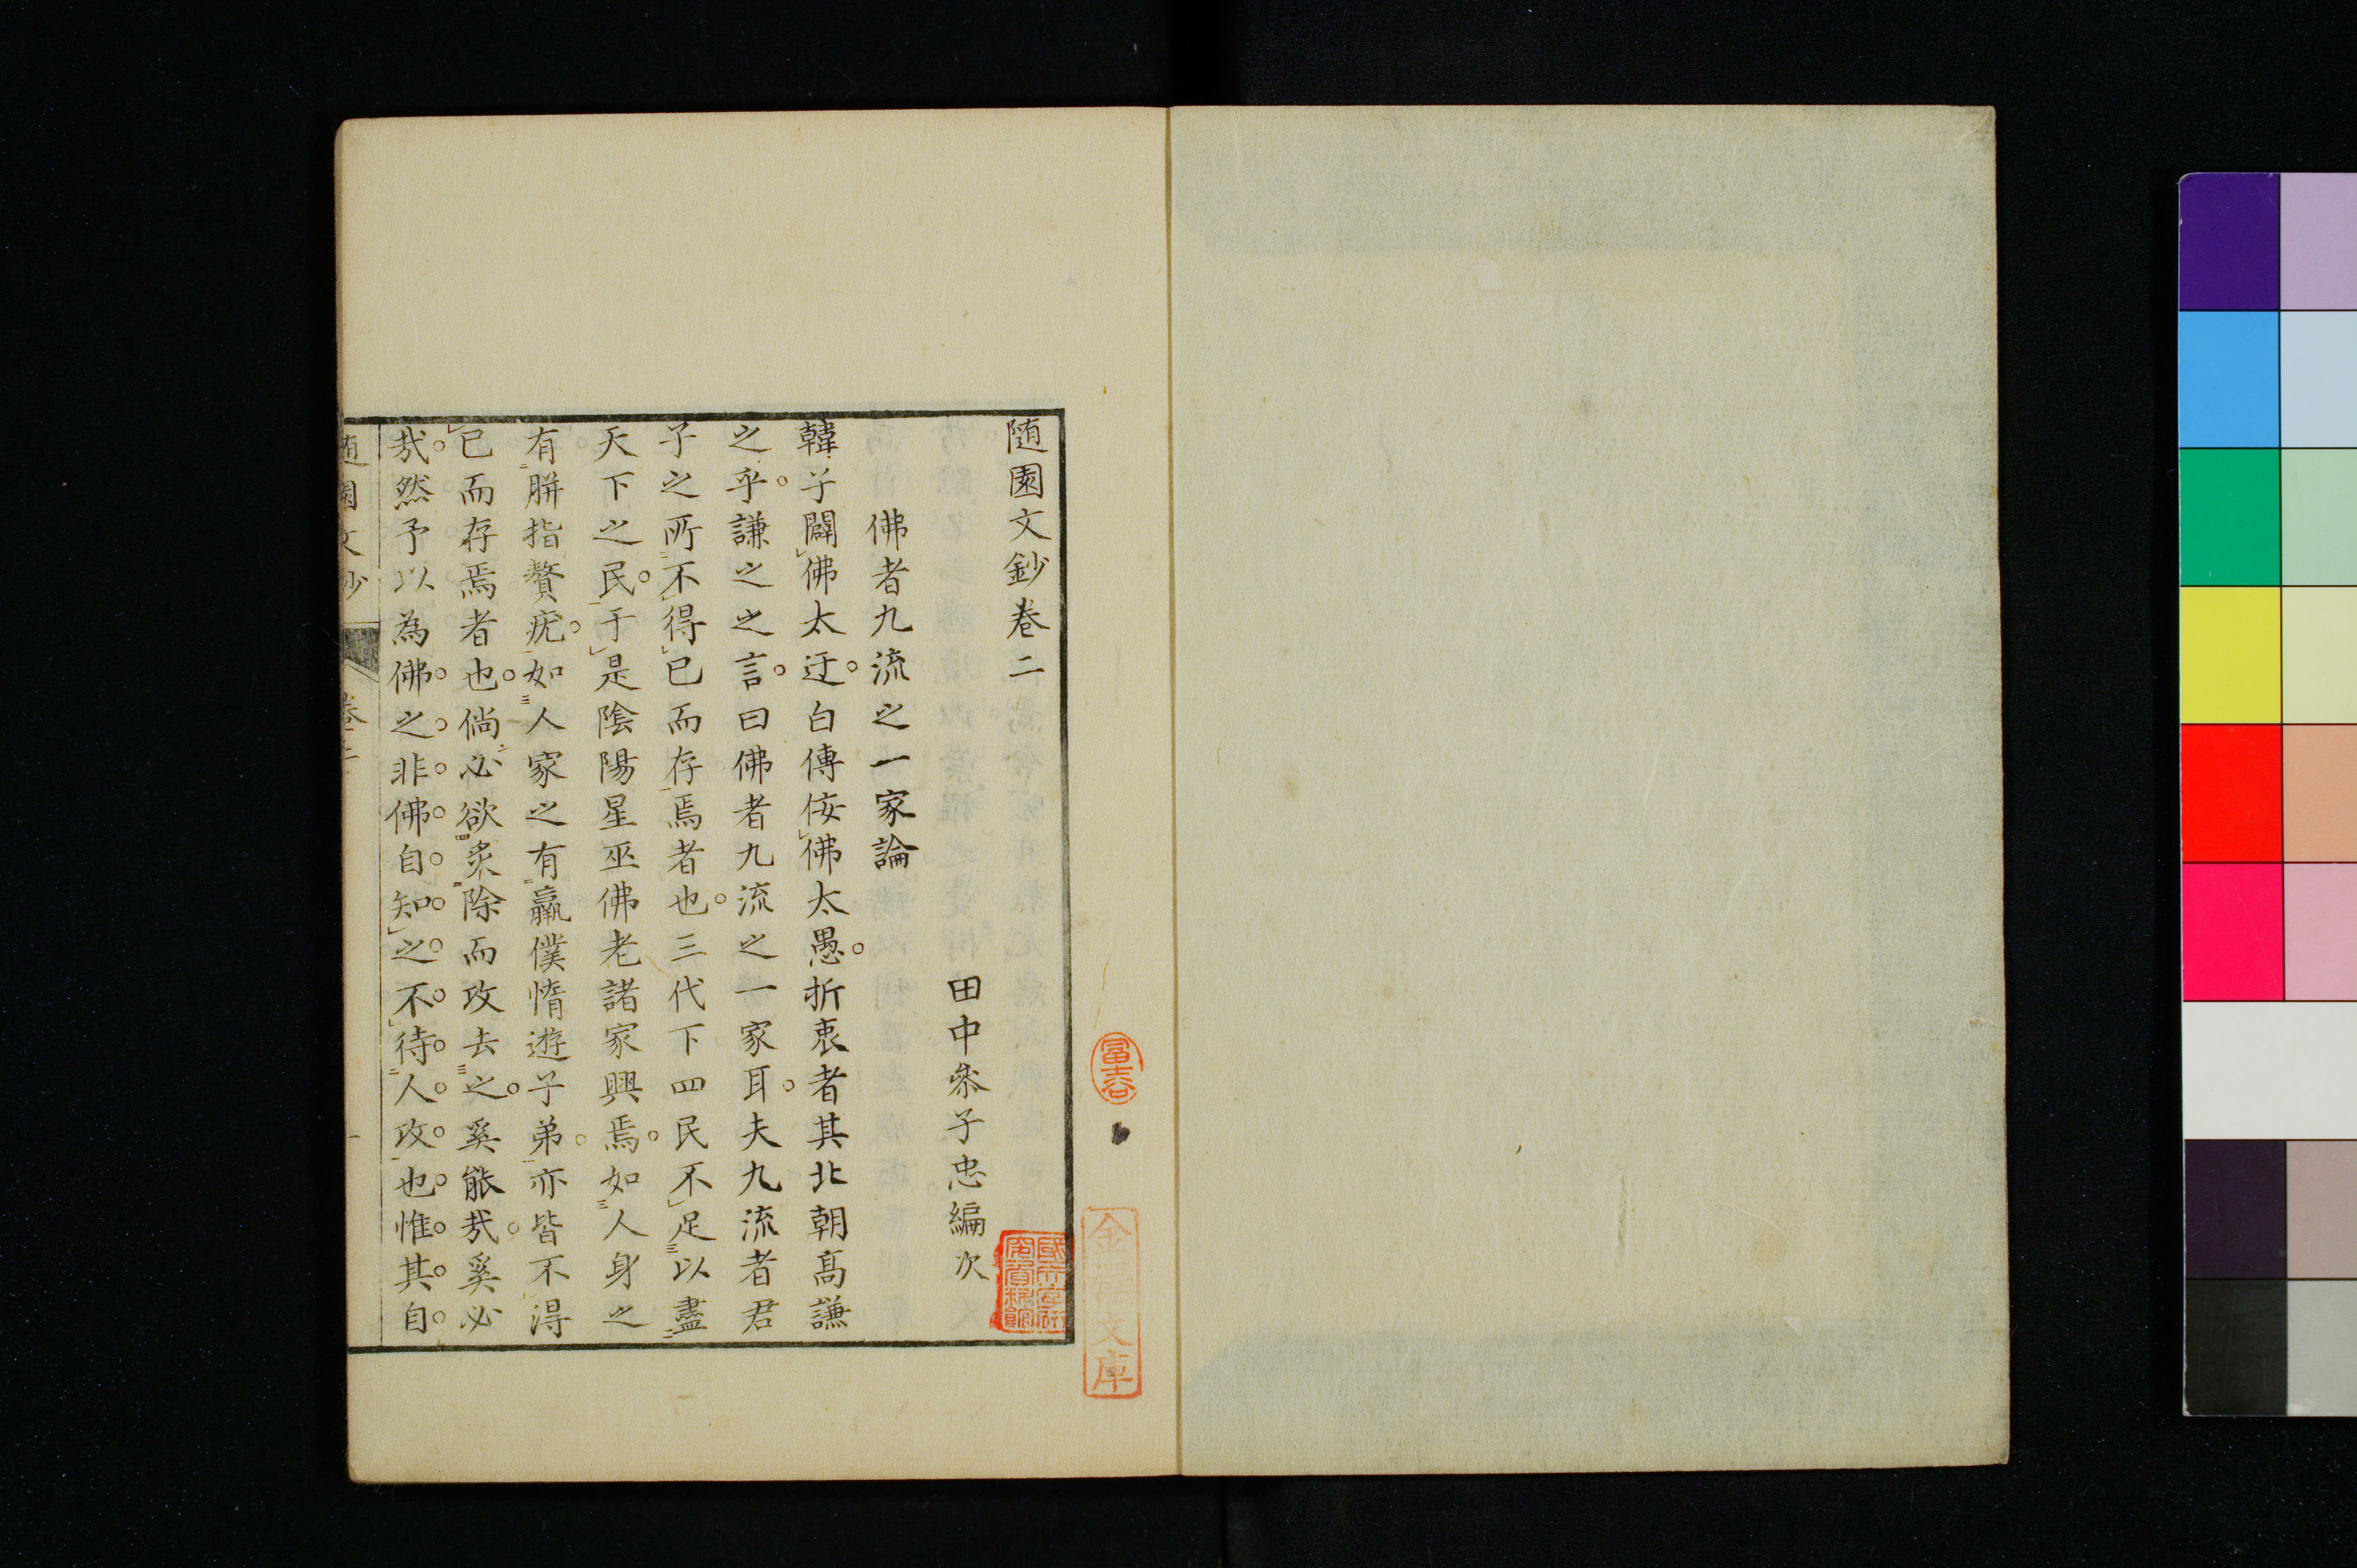 随園文鈔卷二
田中參子忠編次
佛者九流之一家論
韓子闢佛太迂。白傅佞佛太愚。折衷者其北朝高謙
之乎。謙之之言。曰佛者九流之一家耳。夫九流者君
子之所不得已而存焉者也。三代下四民不足以盡
天下之民。于是陰陽星巫佛老諸家興焉。如人身之
有胼指贅疣。如人家之有羸僕惰遊子弟。亦皆不得
已而存焉者也。倘必欲炙除而攻去之。奚能哉。奚必
哉。然予以為佛之非佛自知之不待人攻也惟其自
随園文鈔
卷二
一
金澤文庫